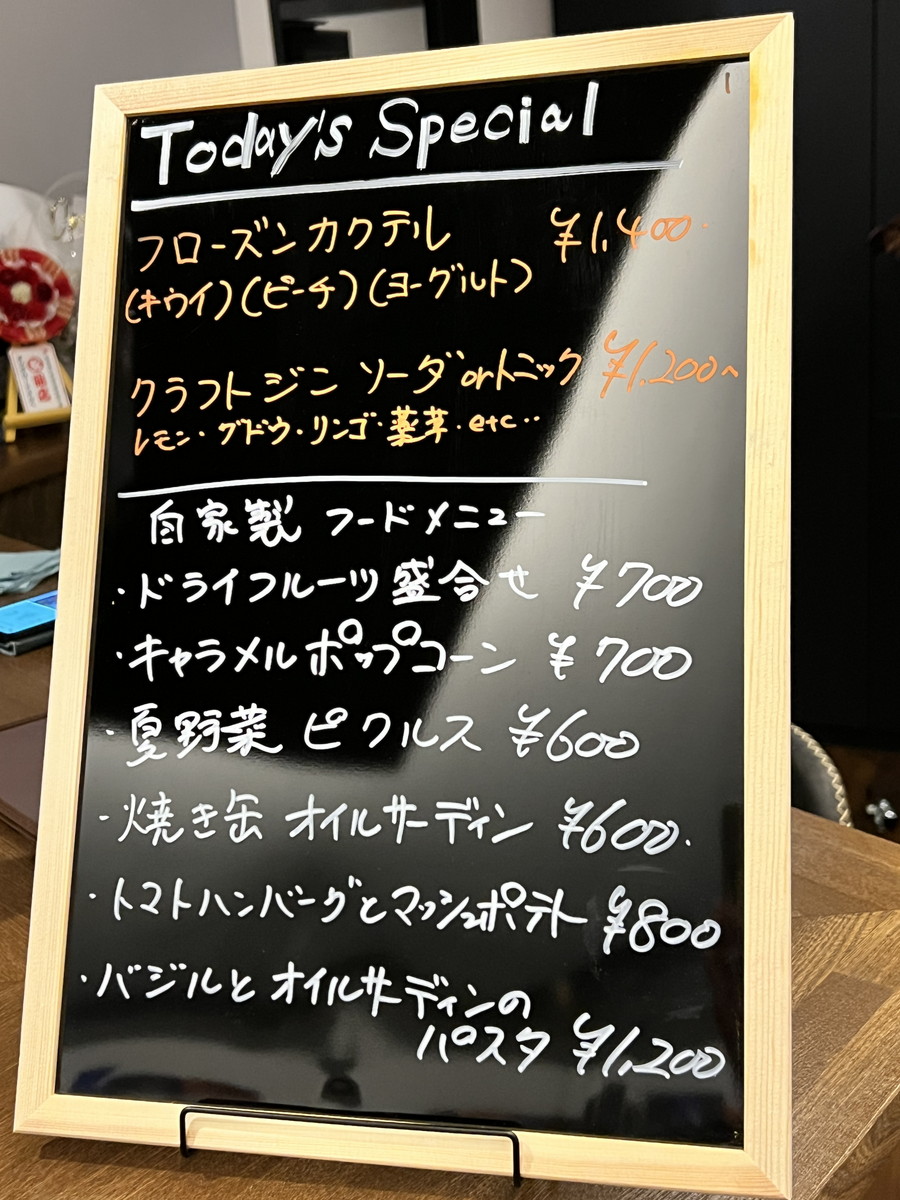 Today's Special
フローズンカクテル ¥1,400.
(キウイ)(ピーチ)(ヨーグルト)
クラフトジン ソーダorトニック ¥1,200~
レモン・ブドウ・リンゴ・薬草・etc‥
自家製 フードメニュー
・ドライフルーツ盛合せ ¥700
・キャラメルポップコーン ¥700
・夏野菜 ピクルス ¥600
・焼き缶 オイルサーディン ¥600.
・トマトハンバーグとマッシュポテト ¥800
・バジルとオイルサーディンの
パスタ ¥1,200